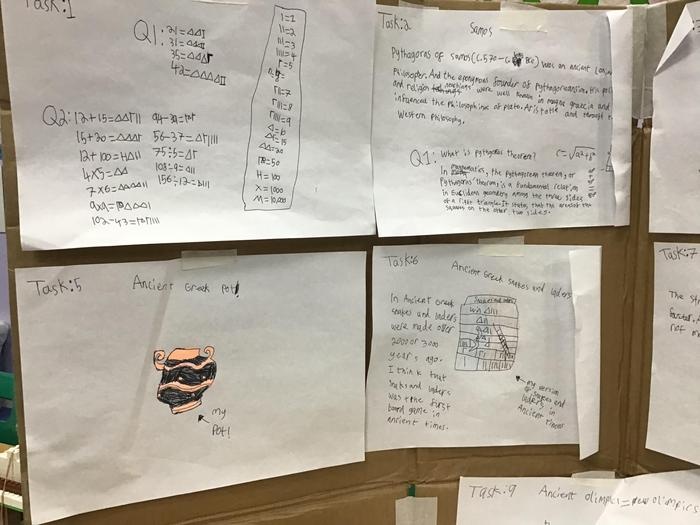 Task:1
Q1: 21=ΔΔI
31=ΔΔΔI
35=ΔΔΔΓ
42=ΔΔΔΔII
Q2: 12+15=ΔΔΓII
15+20=ΔΔΔΓ
12+100=HΔII
4x5=ΔΔ
7x6=ΔΔΔΔII
102-43=
94-39=
56-37=ΔΓIIII
75÷5=ΔΓ
108÷9=ΔII
156÷12=ΔIII
I=1
II=2
III=3
IIII=4
Γ=5
ΓII=7
ΓIII=8
ΓIIII=9
Δ=10
ΔΓ=15
ΔΔ=20
=50
H=100
X=1000
M=10,000
Task:2
Samos
Pythagoras of samos (c.570-c. BCE) was an ancient
Philosopher. And the eponymous founder of pythagoreanism. His
and religion teachings were well known in magna graecia and
influenced the philosophines of plato. Aristotle and through
Western philosophy.
Q1: What is pythagoras theorem?
In mathematics, the pythagorean theorem, or
Pythagoras' theorem, is a fundamental relation
in Euclidean geometry among the three sides
of a right triangle. It states that the area of the
squares on the other two sides.
Task:5
Ancient Greek Pot!
my
Pot!
Task:6
Ancient Greek snakes and ladders
In Ancient Greek
snakes and ladders
were made over
2000 or 3000
years ago.
I think that
snakes and ladders
was the first
board game in
ancient times.
my version
of snakes and
ladders in
Ancient times
Task:7
The
not
Task:9
Ancient olimpics = new olimpics